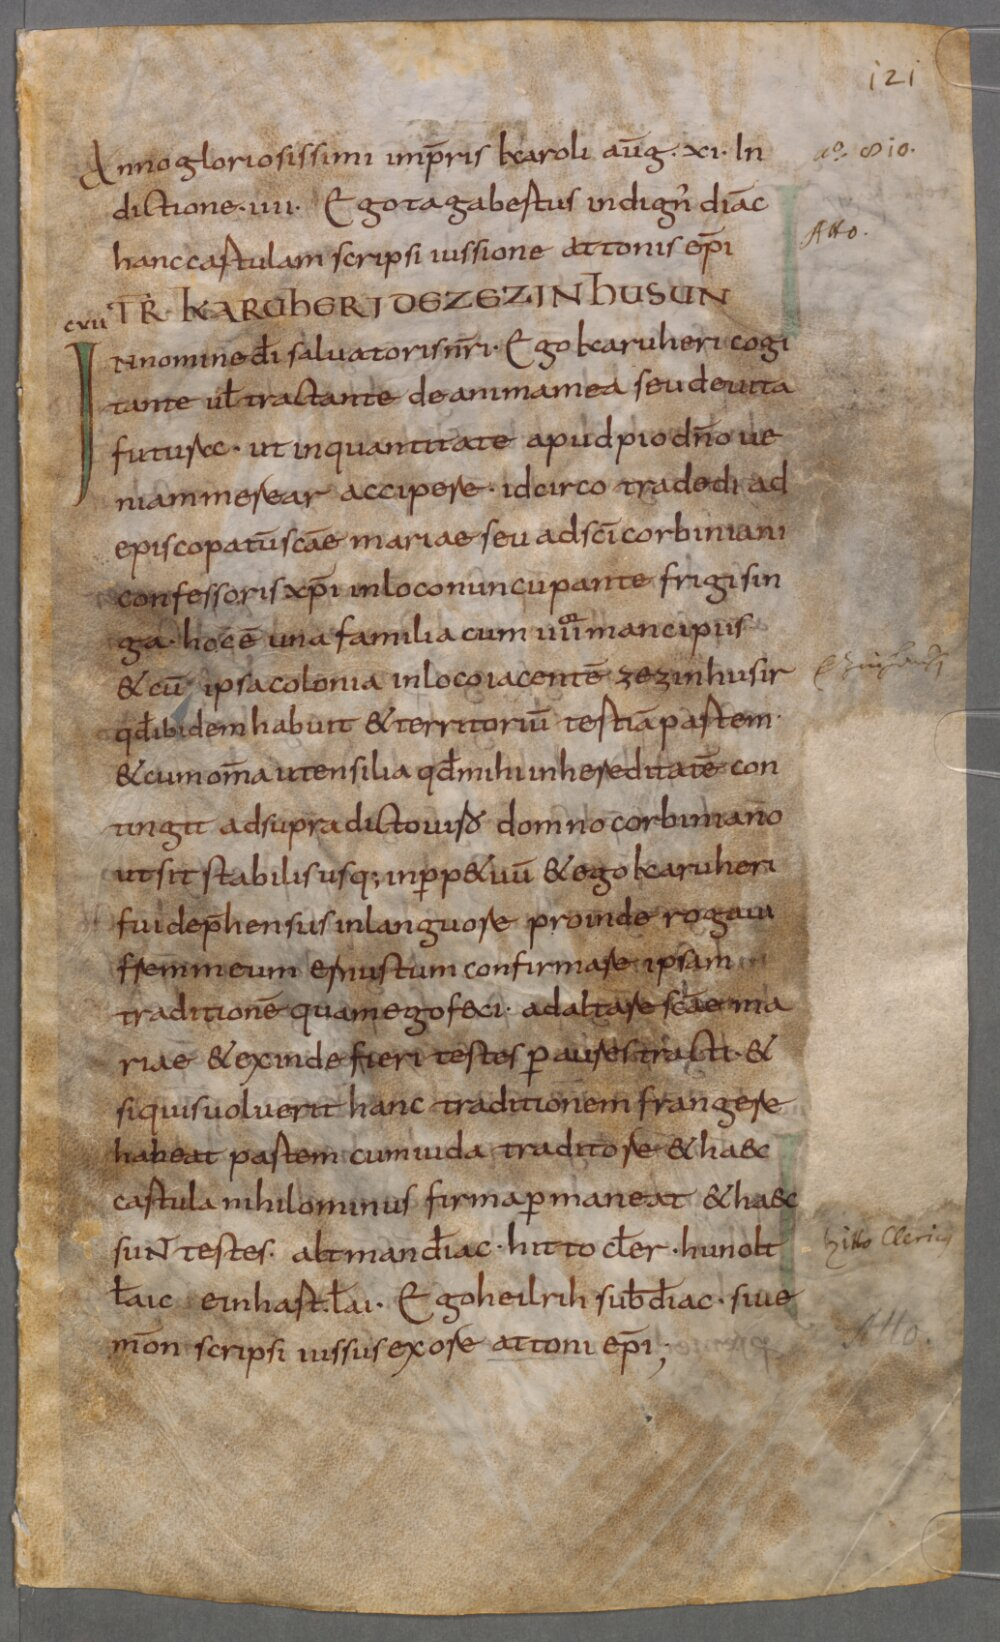 121
Anno gloriosissimi imp̄ris karoli aūg. xi. In
a.º 810.
dictione. iiii. Ego tagabertus indigñ diāc
hanc cartulam scripsi iussione attonis ep̄i
Atto.
TR̄ KARUHERI DE ZEZINHUSUN
cxii
IN nomine dī saluatoris nr̄i. Ego karuheri cogi
tante ul̄ tractante de anima mea seu de uita
futurae. ut in quantitate apud pio dn̄o ue
niam merear accipere. idcirco tradedi ad
episcopatū scāe mariae seu ad scī corbiniani
confessoris xp̄i in loco nuncupante frigisin
ga. hoc ē una familia cum mancipiis
& cū ipsa colonia in loco iacentē zezinhusir
qd̄ ibidem habuit & territoriū tertiā partem.
& cum om̄a utensilia qd̄ mihi in hereditatē con
tingit ad supradicto domno corbiniano
ut sit stabilis usq; in p̄p&uū & ego karuheri
fui dep̄hensus in languore proinde rogaui
frem meum ernustum confirmare ipsam
traditionē quam ego feci. ad altare scāe ma
riae & exinde fieri testes p̄ aures tracti. &
si quis uoluerit hanc traditionem frangere
habeat partem cum iuda traditore & haec
cartula nihilominus firma p̄maneat & haec
suNt testes. altman d̄iac. hitto cl̄er. hunolt
hitto Clericus
l̄aic einhart l̄ai. Ego heilrih sub d̄iac. siue
Atto.
mōn scripsi iussus ex ore attoni ep̄i;